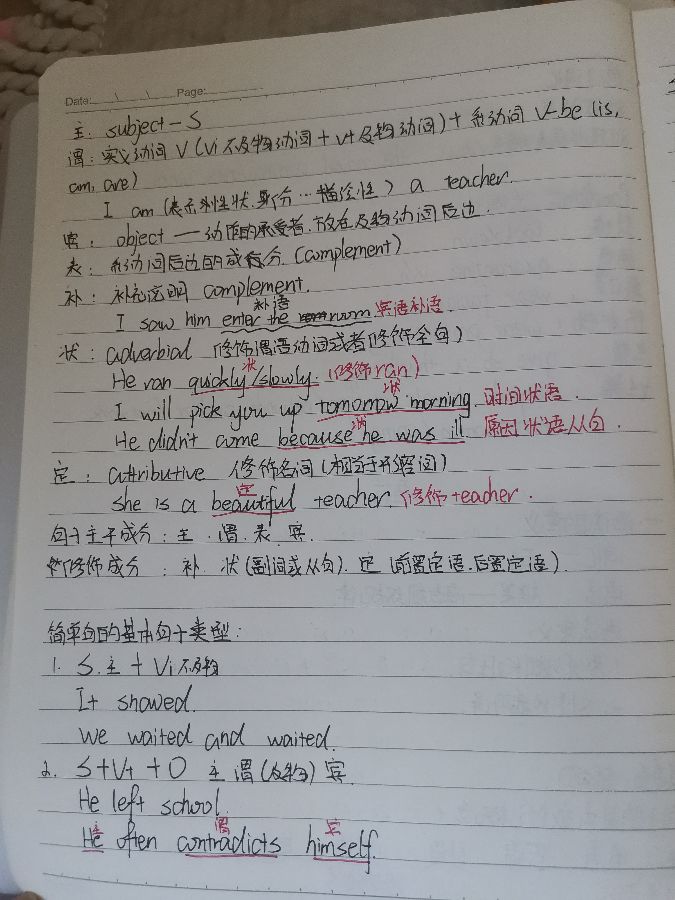 Date: \ \ Page:
主: subject - S
谓: 实义动词 V (Vi 不及物动词 + vt 及物动词) + 系动词 V-be (is,
am, are)
I am (表示外性状. 身份 … 描绘性) a teacher.
宾: object — 动作的承受者. 放在及物动词后边.
表: 系动词后边的成分. (complement)
补: 补充说明 complement.
补语
I saw him enter the room. 宾语补语
状: adverbial 修饰谓语动词或者修饰全句)
状
He ran quickly/slowly. (修饰 ran)
状
I will pick you up tomorrow morning. 时间状语.
状
He didn't come because he was ill. 原因状语从句.
定: attributive 修饰名词 (相当于形容词)
定
She is a beautiful teacher. 修饰 teacher.
句子主干成分: 主. 谓. 表. 宾.
修饰成分: 补. 状(副词或从句). 定 (前置定语. 后置定语).
简单句的基本句子类型:
1. S.主 + Vi 不及物
It showed.
We waited and waited.
2. S+Vt +O 主 谓(及物) 宾
He left school.
主 谓 宾
He often contradicts himself.